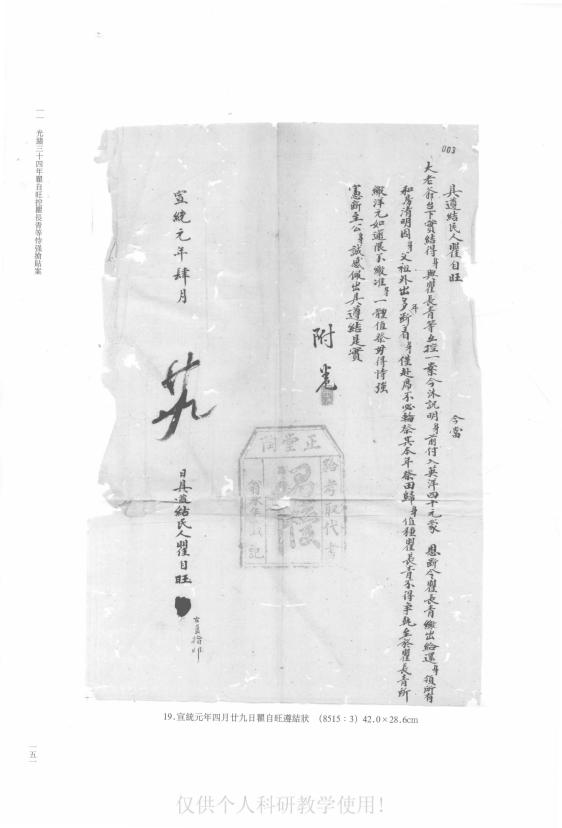 一一 光緒三十四年瞿自旺控瞿長青等恃强搶貼案
003
具遵結民人瞿自旺
今當
大老爺台下實結得身與瞿長青等互控一案今沐訊明身前付入英洋四十元蒙 恩斷令瞿長青繳出給還身領所有
和房清明因身父祖外出多年斷着身僅赴席不必輪祭其本年祭田歸身值種瞿長青不得爭執至於瞿長青所
繳洋元如逾限不繳准身一體值祭毋得恃強
憲斷至公身誠感佩出具遵結是實
附卷
正堂
給考取代書
戳記
宣統元年肆月
廿九
日具遵結民人瞿自旺
19.宣統元年四月廿九日瞿自旺遵結狀 (8515：3) 42.0×28.6cm
一五一
仅供个人科研教学使用！